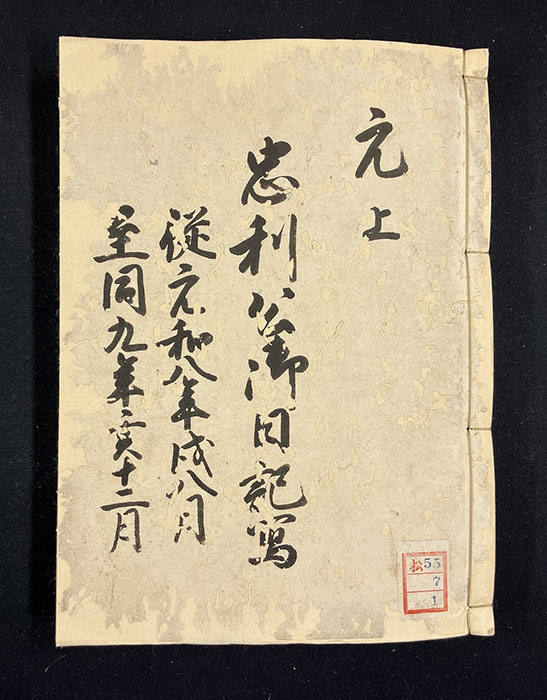 元上
忠利公御日記寫
従元和八年戌八月
至同九年亥十二月
松55
7
1